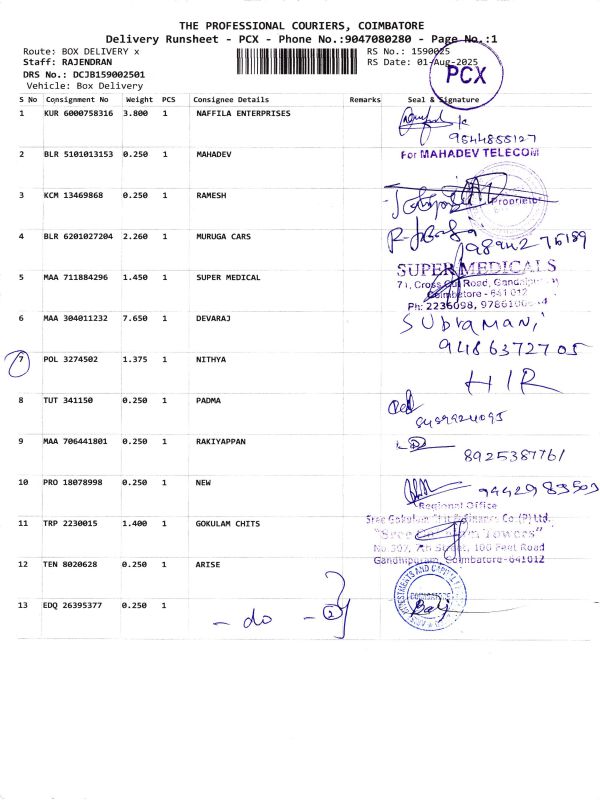 THE PROFESSIONAL COURIERS, COIMBATORE
Delivery Runsheet - PCX - Phone No.:9047080280 - Page No.:1
Route: BOX DELIVERY x RS No.: 1590025
Staff: RAJENDRAN RS Date: 01-Aug-2025
PCX
DRS No.: DCJB159002501
Vehicle: Box Delivery
S No Consignment No Weight PCS Consignee Details Remarks Seal & Signature
1 KUR 6000758316 3.800 1 NAFFILA ENTERPRISES
9544855127
2 BLR 5101013153 0.250 1 MAHADEV For MAHADEV TELECOM
3 KCM 13469868 0.250 1 RAMESH
Proprietor
4 BLR 6201027204 2.260 1 MURUGA CARS
5 MAA 711884296 1.450 1 SUPER MEDICAL SUPER MEDICALS
71, Cross Cut Road,
Coimbatore - 641 012
Ph: 2236098,
6 MAA 304011232 7.650 1 DEVARAJ SUbramani,
9486372705
7 POL 3274502 1.375 1 NITHYA
H/R
8 TUT 341150 0.250 1 PADMA
9 MAA 706441801 0.250 1 RAKIYAPPAN
8925387761
10 PRO 18078998 0.250 1 NEW 9442983503
Regional Office
11 TRP 2230015 1.400 1 GOKULAM CHITS Sree Gokulam Finance Co (P) Ltd.
Towers"
No.307, 7th Street, 100 Feet Road
Gandhipuram, Coimbatore-641012
12 TEN 8020628 0.250 1 ARISE
13 EDQ 26395377 0.250 1
- do - 2